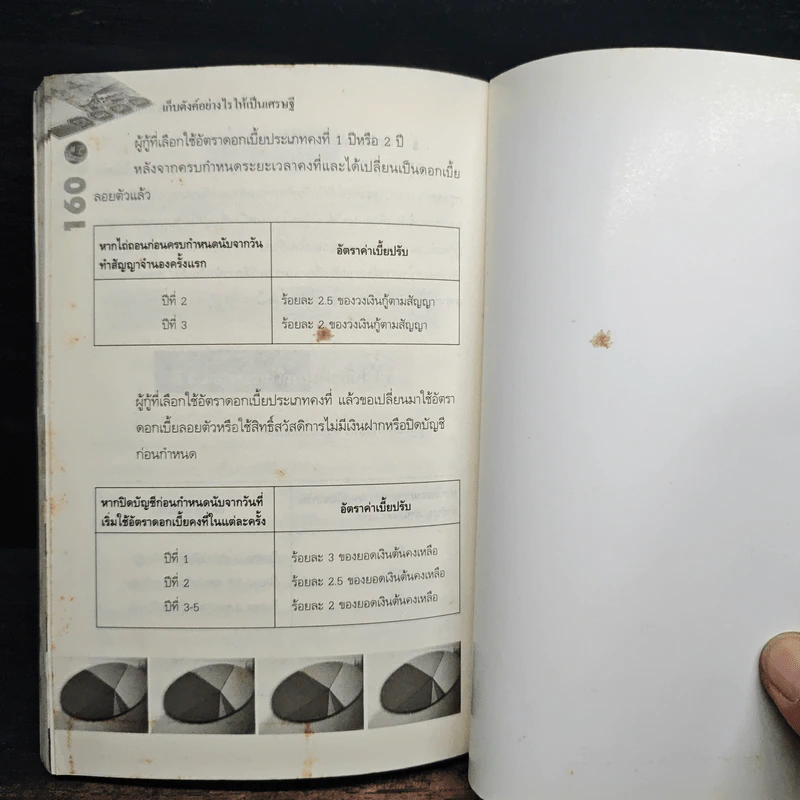 เก็บตังค์อย่างไรให้เป็นเศรษฐี
160
ผู้กู้ที่เลือกใช้อัตราดอกเบี้ยประเภทคงที่ 1 ปีหรือ 2 ปี
หลังจากครบกำหนดระยะเวลาคงที่และได้เปลี่ยนเป็นดอกเบี้ย
ลอยตัวแล้ว
หากไถ่ถอนก่อนครบกำหนดนับจากวัน
ทำสัญญาจำนองครั้งแรก
อัตราค่าเบี้ยปรับ
ปีที่ 2
ร้อยละ 2.5 ของวงเงินกู้ตามสัญญา
ปีที่ 3
ร้อยละ 2 ของวงเงินกู้ตามสัญญา
ผู้กู้ที่เลือกใช้อัตราดอกเบี้ยประเภทคงที่ แล้วขอเปลี่ยนมาใช้อัตรา
ดอกเบี้ยลอยตัวหรือใช้สิทธิ์สวัสดิการไม่มีเงินฝากหรือปิดบัญชี
ก่อนกำหนด
หากปิดบัญชีก่อนกำหนดนับจากวันที่
เริ่มใช้อัตราดอกเบี้ยคงที่ในแต่ละครั้ง
อัตราค่าเบี้ยปรับ
ปีที่ 1
ร้อยละ 3 ของยอดเงินต้นคงเหลือ
ปีที่ 2
ร้อยละ 2.5 ของยอดเงินต้นคงเหลือ
ปีที่ 3-5
ร้อยละ 2 ของยอดเงินต้นคงเหลือ